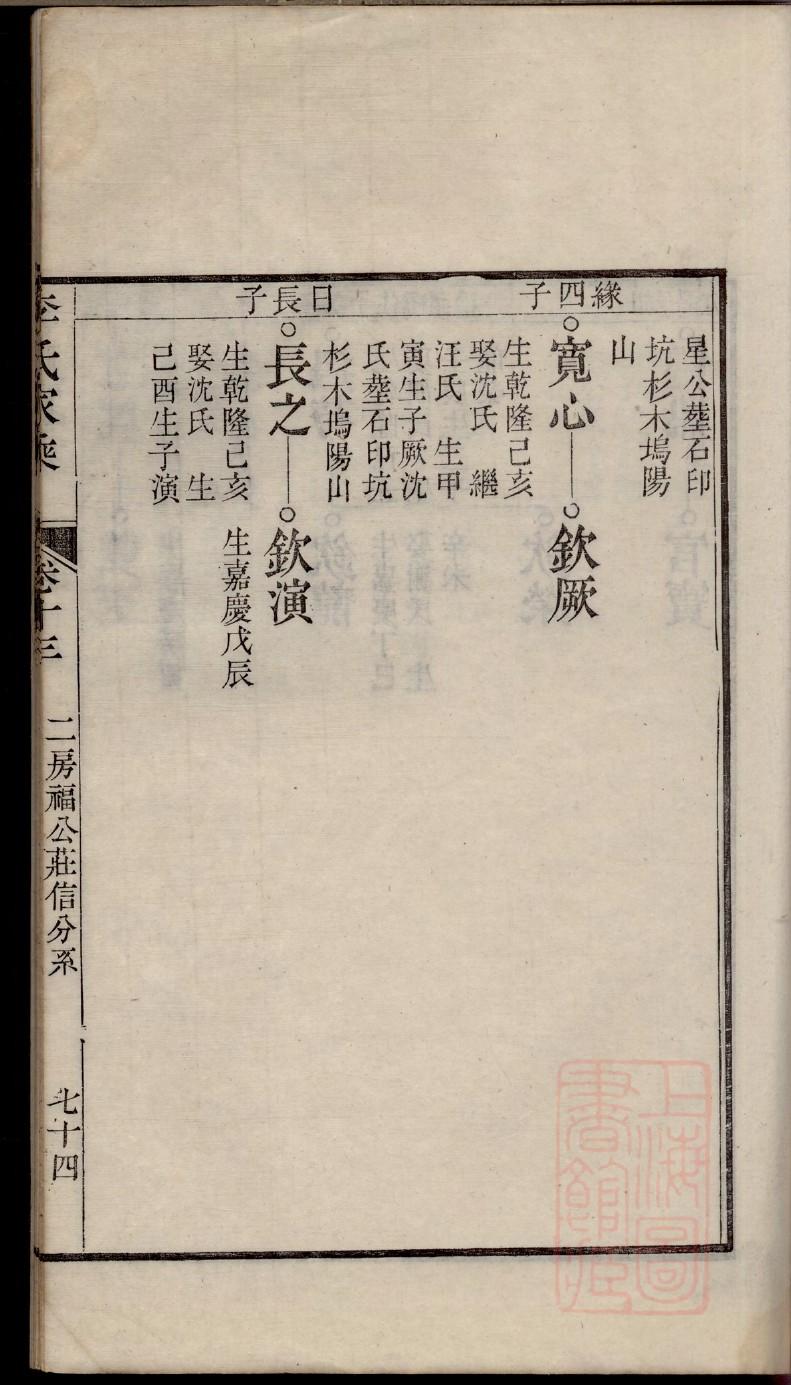 星公塟石印
坑杉木塢陽
山
緣四子
寛心
生乾隆己亥
娶沈氏 繼
汪氏 生甲
寅生子厥沈
氏塟石印坑
杉木塢陽山
欽厥
日長子
長之
生乾隆己亥
娶沈氏 生
己酉生子演
欽演
生嘉慶戊辰
李氏家乘
卷十三
二房福公莊信分系
七十四
上海圖書館藏